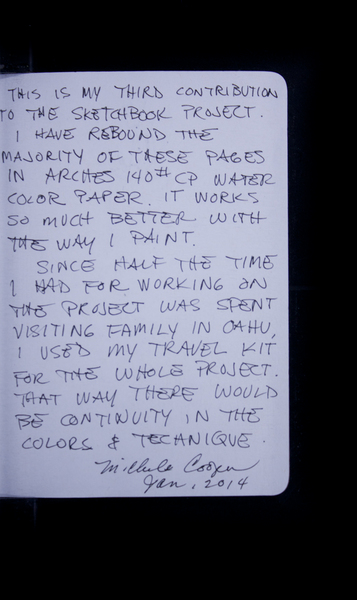 THIS IS MY THIRD CONTRIBUTION
TO THE SKETCHBOOK PROJECT.
I HAVE REBOUND THE
MAJORITY OF THESE PAGES
IN ARCHES 140# CP WATER
COLOR PAPER. IT WORKS
SO MUCH BETTER WITH
THE WAY I PAINT.
SINCE HALF THE TIME
I HAD FOR WORKING ON
THE PROJECT WAS SPENT
VISITING FAMILY IN OAHU,
I USED MY TRAVEL KIT
FOR THE WHOLE PROJECT.
THAT WAY THERE WOULD
BE CONTINUITY IN THE
COLORS & TECNIQUE.
Michele Cooper
Jan, 2014